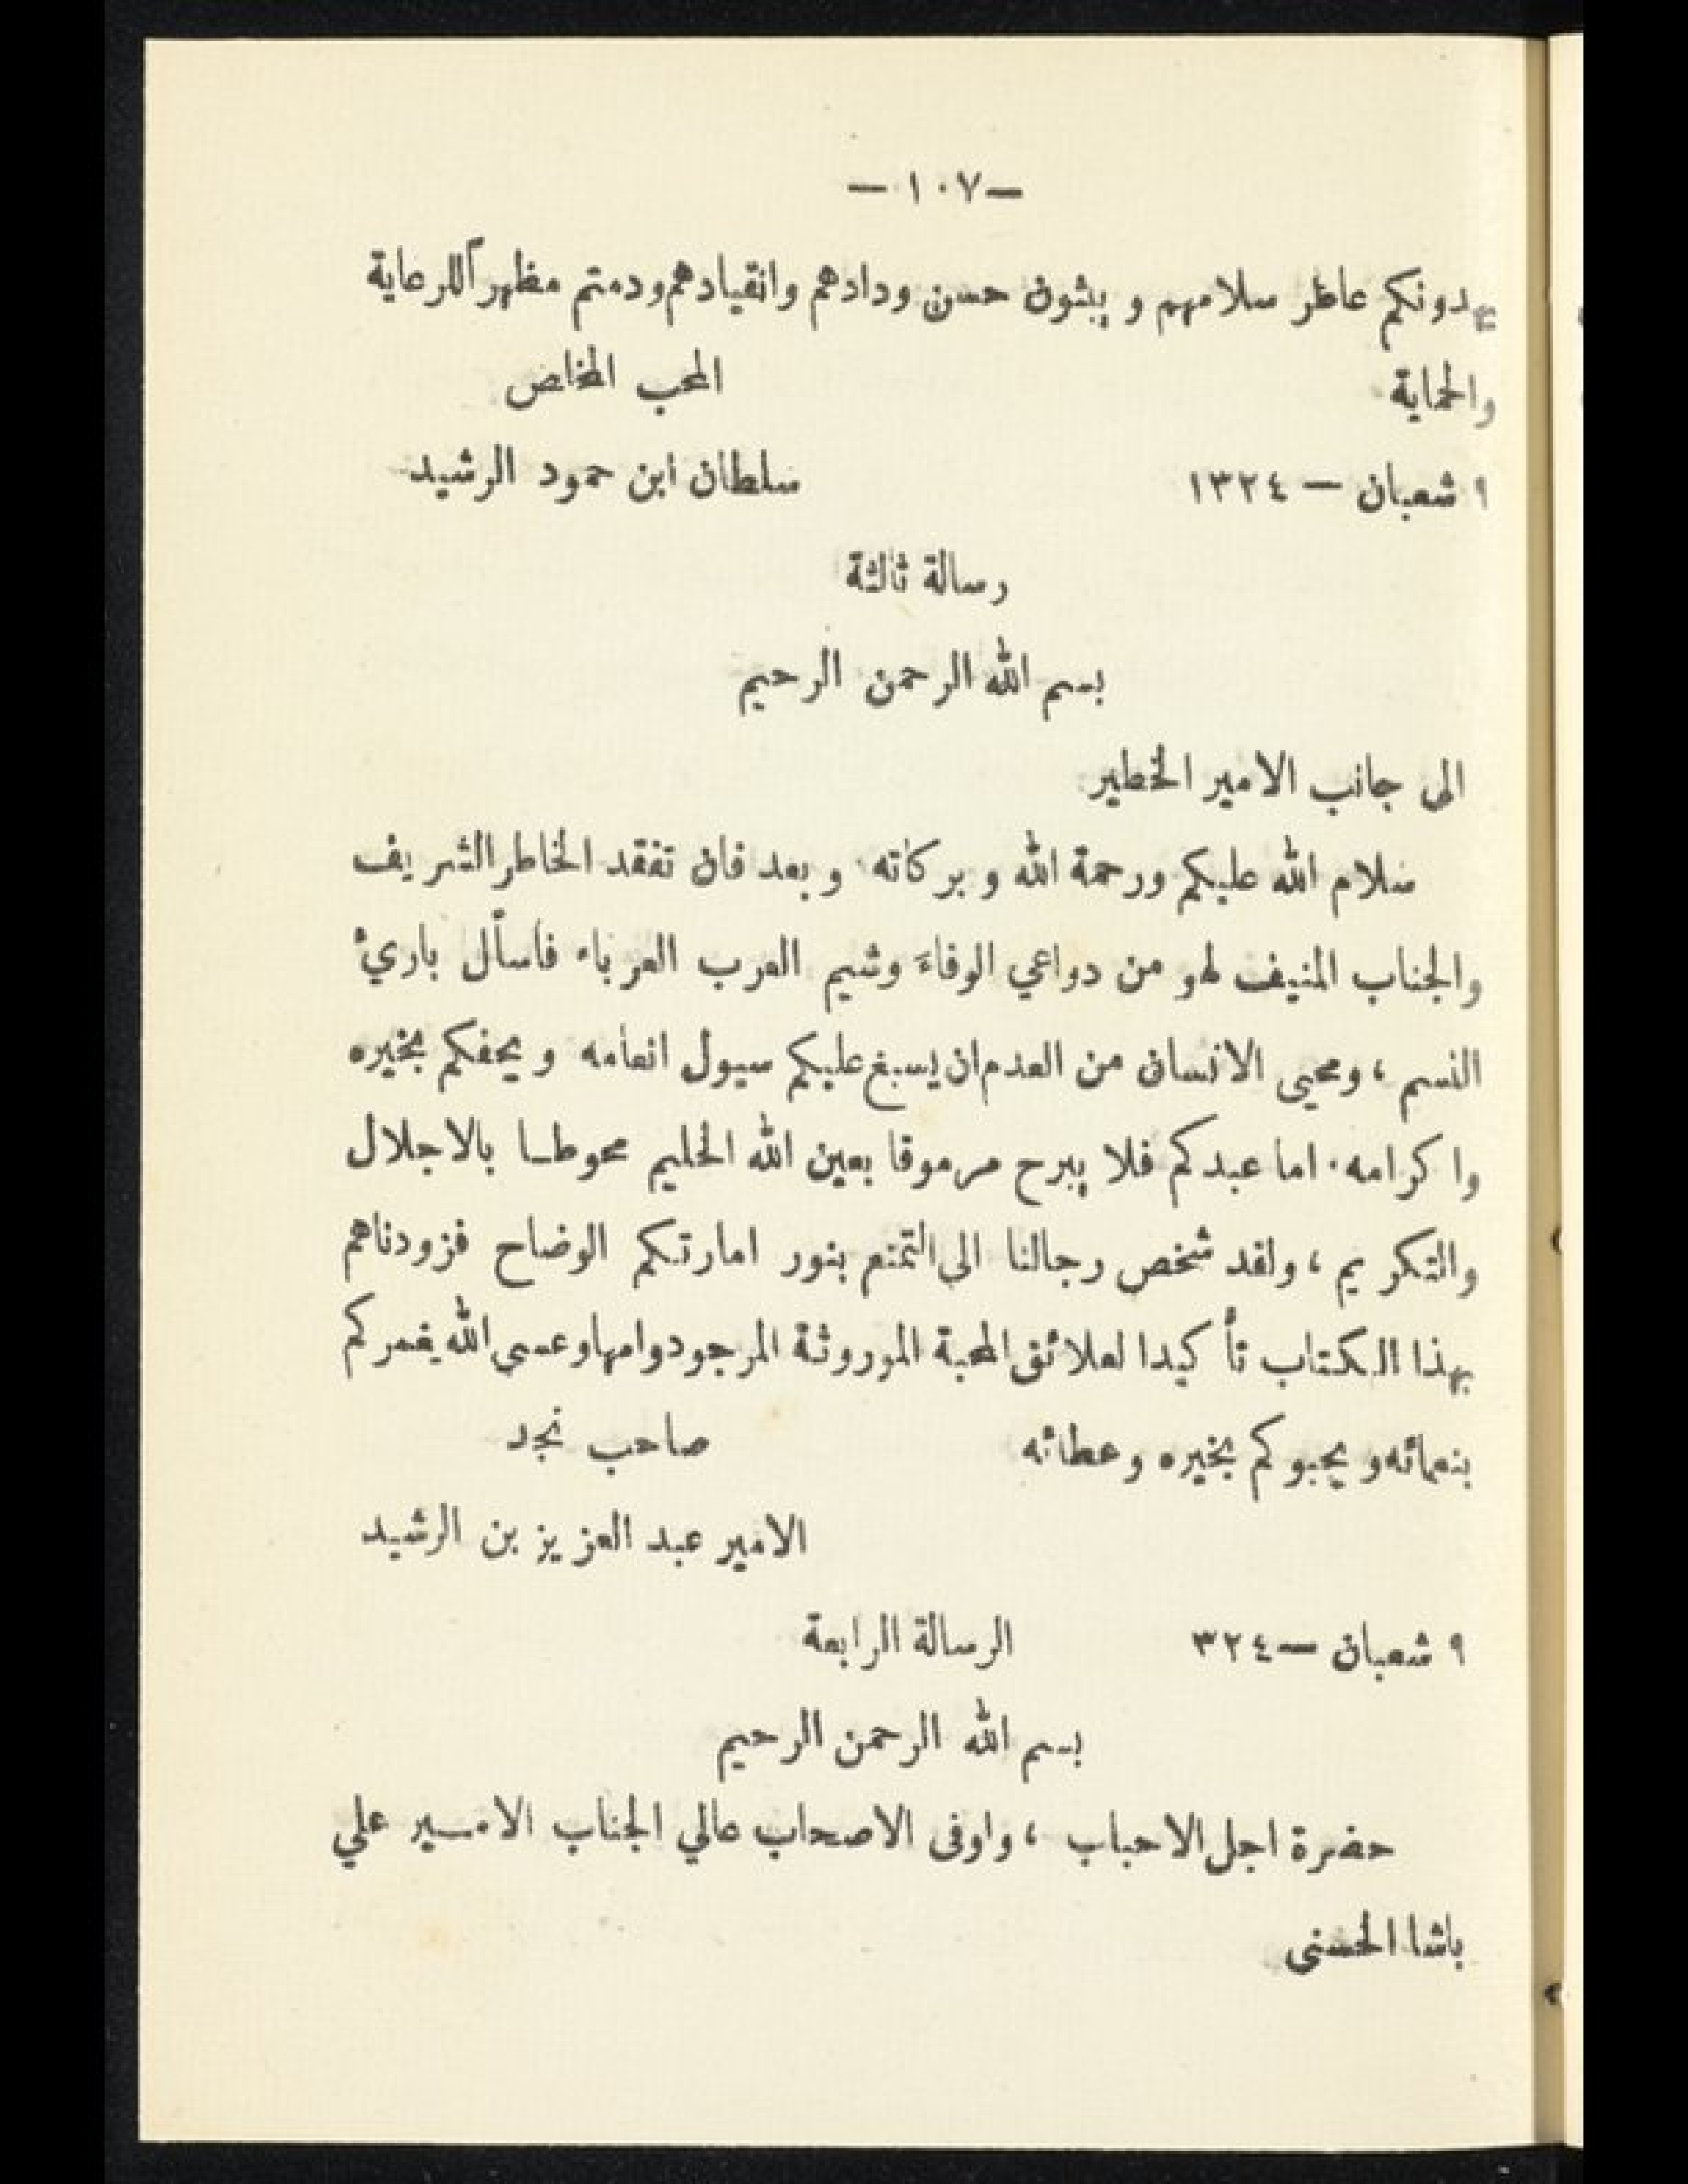 — ١٠٧ —
يهدونكم عاطر سلامهم و يبثون حسن ودادهم وانقيادهم ودمتم مظهراً للرعاية
والحماية المحب المخلص
٩ شعبان — ١٣٢٤ سلطان ابن حمود الرشيد
رسالة ثالثة
بسم الله الرحمن الرحيم
الى جانب الامير الخطير
سلام الله عليكم ورحمة الله و بركاته و بعد فان تفقد الخاطر الشريف
والجناب المنيف لهو من دواعي الوفاءَ وشيم العرب العرباء فاسأل باريءْ
النسم ، ومحيى الانسان من العدم ان يسبغ عليكم سيول انعامه و يحفكم بخيره
واكرامه . اما عبدكم فلا يبرح مرموقا بعين الله الحليم محوطا بالاجلال
والتكريم ، ولقد شخص رجالنا الى التمنع بنور امارتكم الوضاح فزودناهم
بهذا الكتاب تأكيدا لعلائق المحبة الموروثة المرجو دوامها وعسى الله يغمركم
بنعمائه و يحبوكم بخيره وعطائه صاحب نجد
الامير عبد العزيز بن الرشيد
٩ شعبان — ٣٢٤ الرسالة الرابعة
بسم الله الرحمن الرحيم
حضرة اجل الاحباب ، واوفى الاصحاب عالي الجناب الامير علي
باشا الحسنى